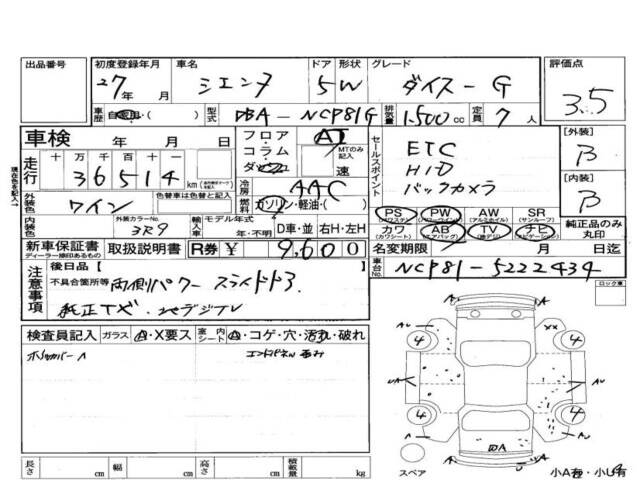 出品番号 初度登録年月 車名 ドア 形状 グレード 評価点
27年 月 シエンタ 5 W ダイス-G 3.5
車歴 自家用・( ) 型式 DBA-NCP81G 排気量 1500cc 定員 7人
車検 年 月 日
フロア コラム ダッシュ AT MTのみ記入 速
セールスポイント
ETC
HID
バックカメラ
[外装] B
[内装] B
走行 十 万 千 百 十 一
36514 km
冷房 AAC
燃料 ガソリン・軽油・( )
外装色 ワイン
内装色 外装カラーNo. 3R9
輸入車 モデル年式 年・不明 D車・並 右H・左H
PS PW AW SR
(パワステ) (パワーウィン) (アルミホイル) (サンルーフ)
カワ AB TV ナビ
(カワシート) (エアバッグ) (地デジ) (ナビゲーション)
純正品のみ丸印
新車保証書 取扱説明書 R券 ¥ 9,600
ディーラー捺印あるもの
名変期限 月 日迄
車台No. NCP81-5222434
注意事項
後日品【 】
不具合箇所等 両側パワースライドドア
純正ナビ・地デジTV
ロック車
検査員記入 ガラス A・X要ス 室内シート A・コゲ・穴・汚れ・破れ
エンドパネル歪み
A U
XX
AU
U
4 4
4 4
UA
スペア
小A有・小U有
長さ cm 幅 cm 高さ cm 積載量 kg
現在色を記入→